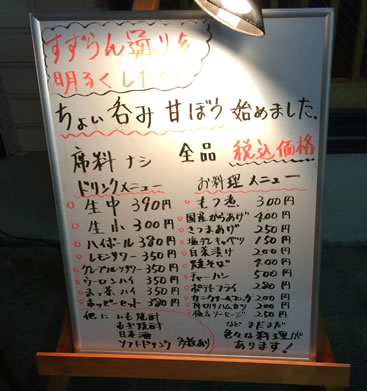 すずらん通りを
明るくした
ちょい呑み 甘ぼう 始めました。
席料 ナシ 全品 税込価格
ドリンクメニュー
生中 390円
生小 300円
ハイボール 380円
レモンサワー 350円
350円
ウーロンハイ 350円
お茶ハイ 350円
ホッピーセット 380円
他にいも焼酎
むぎ焼酎
日本酒
ソフトドリンク 多数あり
お料理メニュー
もつ煮 300円
国産からあげ 400円
さつまあげ 250円
塩ダレキャベツ 150円
白菜漬け 200円
焼そば 400円
チャーハン 500円
ポテトフライ 280円
カニクリームコロッケ 200円
厚切りハムカツ 200円
ソーセージ 250円
などまだまだ
色々な料理が
あります!